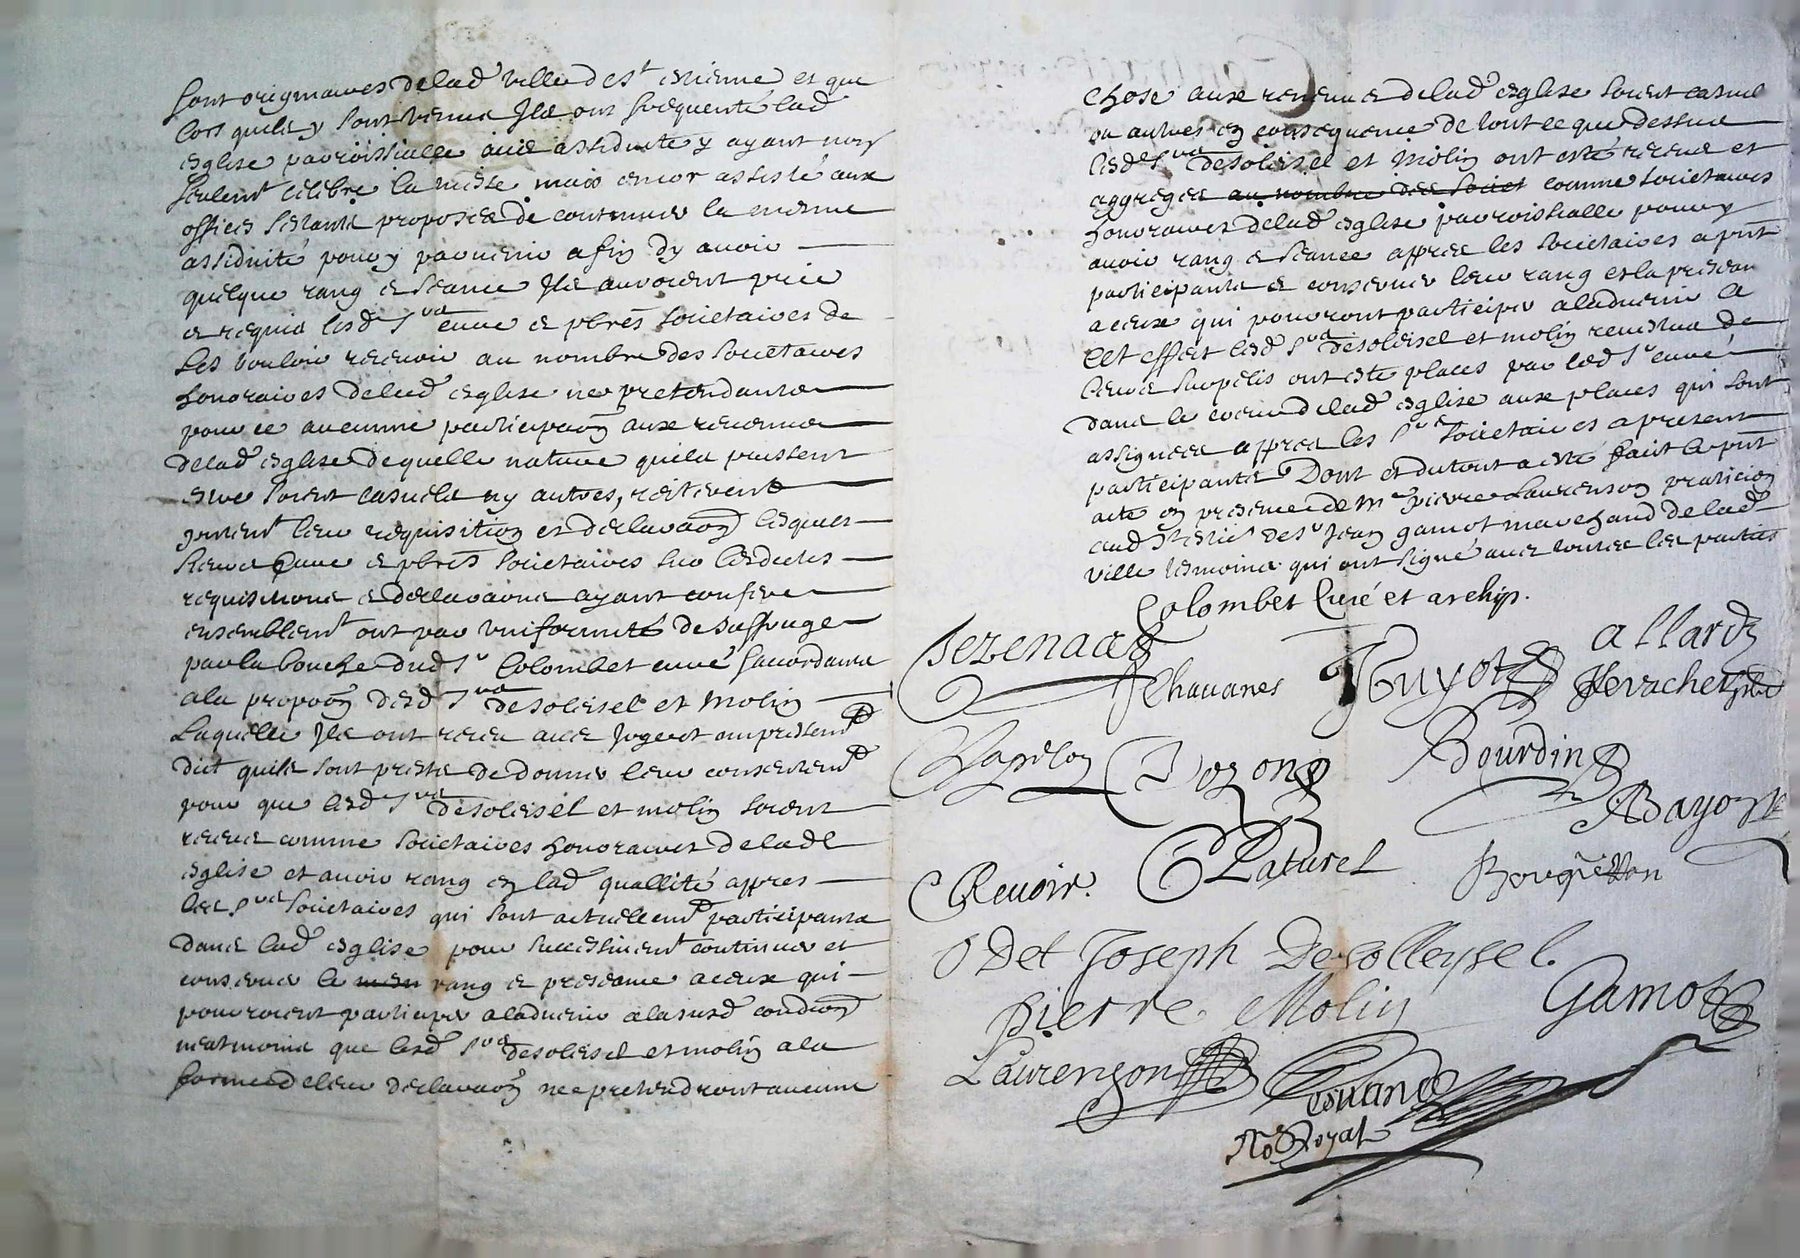 sont originaires delad' ville de St estienne et que
lors quils y sont venus Ils ont frequenté lad'
esglise parroissialle avec assiduité y ayant non
seulemt celebré la messe mais encor assisté aux
offices estants proposés de continuer la mesme
assiduité pour y parvenir afin dy avoir
quelque rang & seance Ils auroient prié
& requis lesd' Srs curé & pbres societaires de
les vouloir recevoir au nombre des societaires
honoraires de lad' esglise ne pretendants
pour ce aucunne participaon aux revenus
delad' esglise de quelle nature quils puissent
estre soient casuels ny autres, reiterent
leur requisition et declaraon lesquels
Sieurs Curé & pbres societaires sur lesdites
requisitions & declaraons ayant conferé
ensemblemt ont par uniformité de suffrage
par la bouche dud' Sr Colombet curé saccordants
a la propoon desd' Srs desoleisel et Molin
Laquelle Ils ont receu avec
dict quils sont prests de donner leur consentemt
pour que lesd' Srs desoleisel et molin soient
receus comme societaires honoraires de lad'
esglise et avoir rang en lad' quallité appres
les Srs societaires qui sont actuellemt participants
dans lad' esglise pour successivemt continuer et
conserver le mesm rang & preseance a ceux qui
pourroient participer a ladvenir a la susd' condion
neatmoins que lesd' Srs desoleisel et molin a la
forme de leur declaraon ne pretendront aucune
chose aux revenus delad' esglise soient casuel
ou autres en consequence de tout ce que dessus
lesd' Srs desoleisel et Molin ont esté receus et
aggregés au nombre des societ comme societaires
honoraires delad' esglise parroissialle pour y
avoir rang & seance appres les societaires a pnt
participants & conserver leur rang et la presean
a ceux qui pourront participer a ladvenir &
cet effect lesd' Srs desoleisel et molin revestus de
leurs surpelis ont esté placés par led' Sr curé
dans le coeur delad' esglise aux places qui sont
assignées appres les Srs societaires a present
participants Dont et du tout a esté faict le pnt
acte en presence de Me pierre Laurenson praticien
aud' St estiene & de Sr Jean gamot marchand de lad'
ville tesmoins qui ont signé avec toutes les parties
Colombet Curé et archip.
Bezenacet
allard
Chavanes
Guyot
Verachet pbre
Papelon
Dozon
Bourdin
Revoir
C Laturel
Odet Joseph Desolleysel.
Pierre Molin
Gamot
Laurenson
No Royal